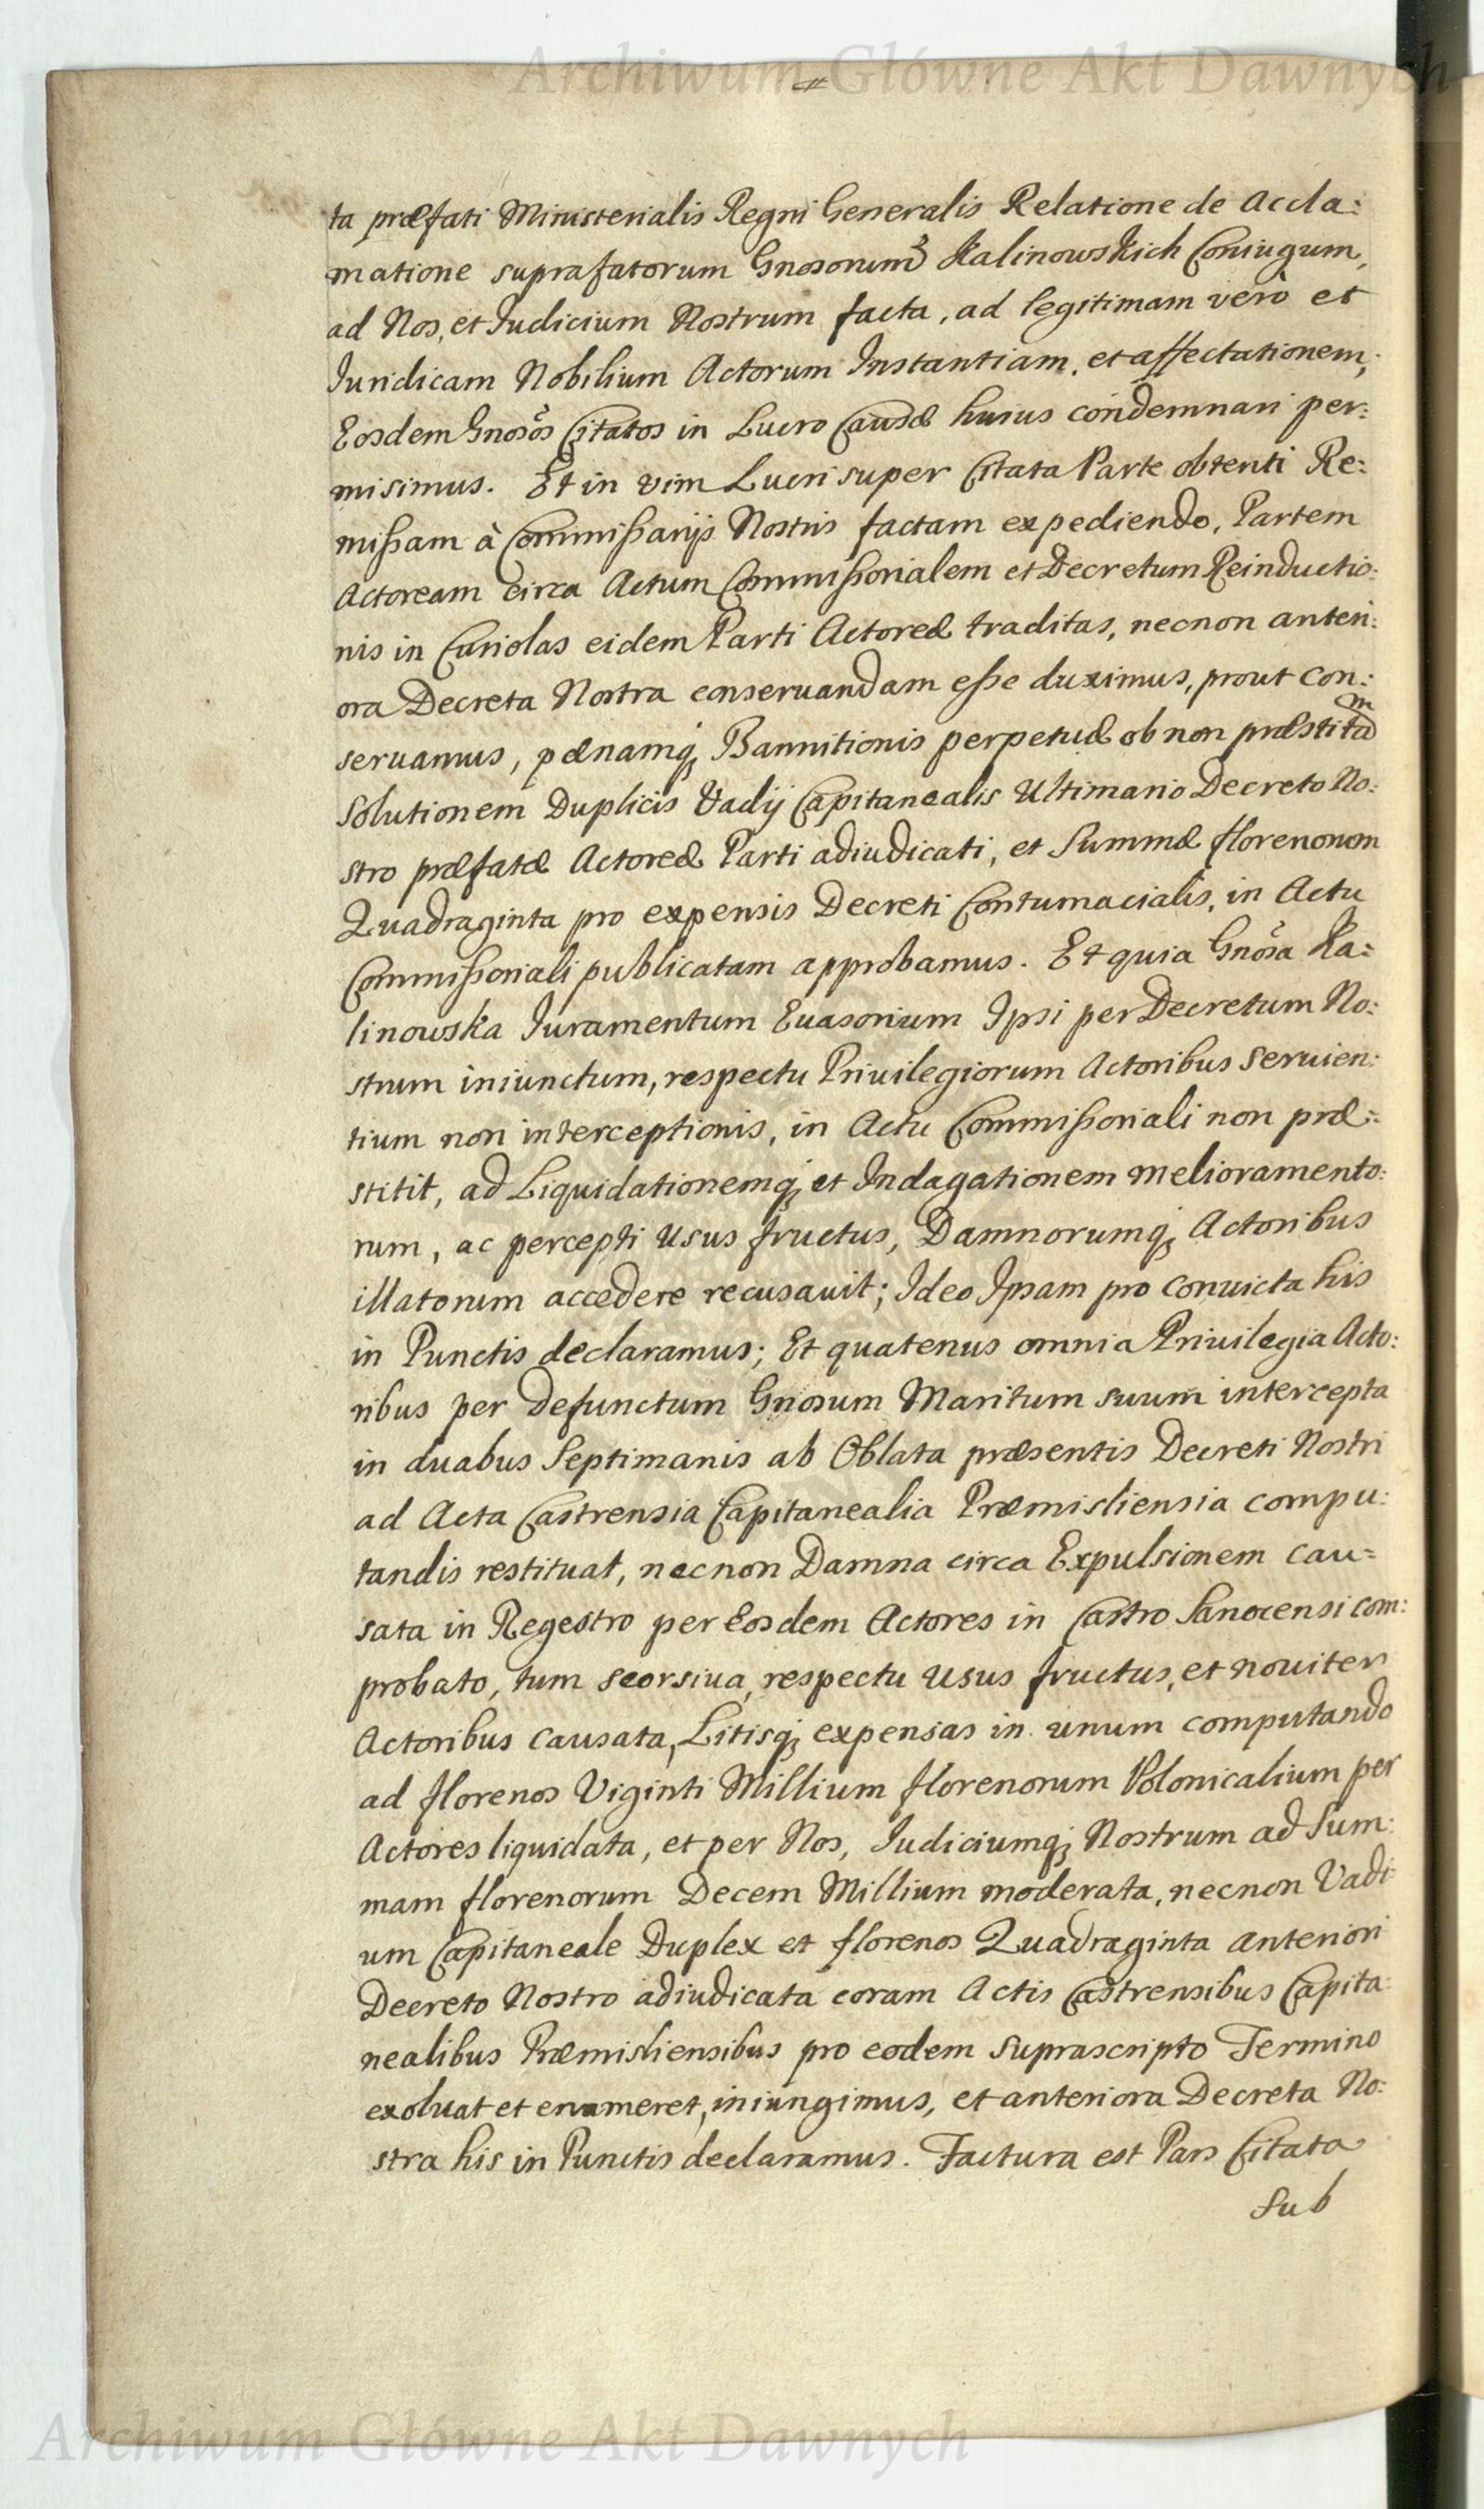 Archiwum Główne Akt Dawnych
ta præfati Ministerialis Regni Generalis Relatione de Accla:
matione suprafatorum Gnosorum Kalinowskich Coniugum,
ad Nos, et Iudicium Nostrum facta, ad legitimam verò et
Iuridicam Nobilium Actorum Instantiam, et affectationem,
Eosdem Gnosos Citatos in Lucro Causæ huius condemnari per:
misimus. Et in vim Lucri super Citata Parte obtenti Re:
mißam à Commißarijs Nostris factam expediendo, Partem
Actoream circa Actum Commißorialem et Decretum Reinductio:
nis in Cariolas eidem Parti Actoreæ traditas, necnon anteri:
ora Decreta Nostra conseruandam eße duximus, prout con:
seruamus, pænamq; Bannitionis perpetuæ ob non præstitam
Solutionem Duplicis Vadij Capitanealis Ultimario Decreto No:
stro præfatæ Actoreæ Parti adiudicati, et Summæ florenorum
Quadraginta pro expensis Decreti Contumacialis, in Actu
Commißoriali publicatam approbamus. Et quia Gnosa Ka:
linowska Iuramentum Euasorium Ipsi per Decretum No:
strum iniunctum, respectu Priuilegiorum Actoribus seruien:
tium non interceptionis, in Actu Commißoriali non præ:
stitit, ad Liquidationemq; et Indagationem melioramento:
rum, ac percepti usus fructus, Damnorumq; Actoribus
illatorum accedere recusauit; Ideo Ipsam pro conuicta his
in Punctis declaramus; Et quatenus omnia Priuilegia Acto:
ribus per Defunctum Gnosum Maritum suum intercepta
in duabus Septimanis ab Oblata præsentis Decreti Nostri
ad Acta Castrensia Capitanealia Præmisliensia compu:
tandis restituat, necnon Damna circa Expulsionem cau:
sata in Regestro per Eosdem Actores in Castro Sanocensi com:
probato, tum seorsiua, respectu usus fructus, et nouiter
Actoribus causata, Litisq; expensas in unum computando
ad florenos Viginti Millium florenorum Polonicalium per
Actores liquidata, et per Nos, Iudiciumq; Nostrum ad Sum:
mam florenorum Decem Millium moderata, necnon Vadi:
um Capitaneale Duplex et florenos Quadraginta anteriori
Decreto Nostro adiudicata coram Actis Castrensibus Capita:
nealibus Præmisliensibus pro eodem suprascripto Termino
exoluat et enumeret, iniungimus, et anteriora Decreta No:
stra his in Punctis declaramus. Factura est Pars Citata
Sub
Archiwum Główne Akt Dawnych